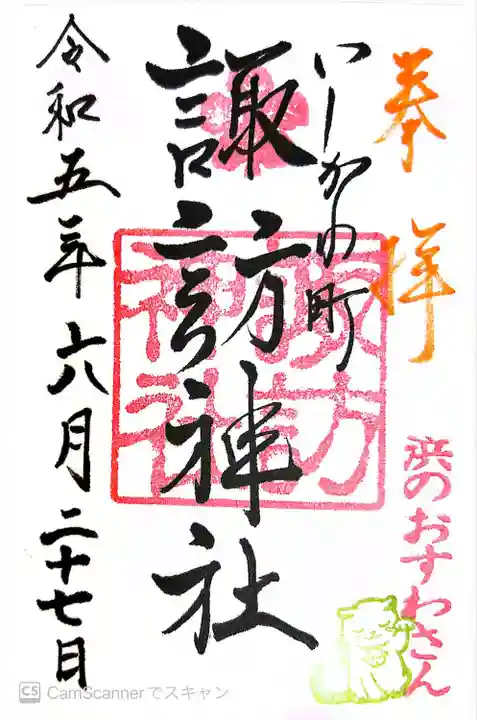 奉拝
いしかわ町
諏訪神社
諏訪
神社
令和五年六月二十七日
浜のおすわさん
CS CamScannerでスキャン